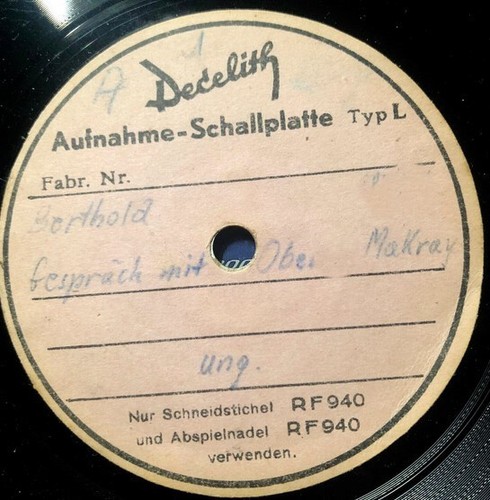 A 1
Decelith
Aufnahme-Schallplatte Typ L
Fabr. Nr.
Berthold
Gespräch mit Ober. Makray
ung.
Nur Schneidstichel RF 940
und Abspielnadel RF 940
verwenden.